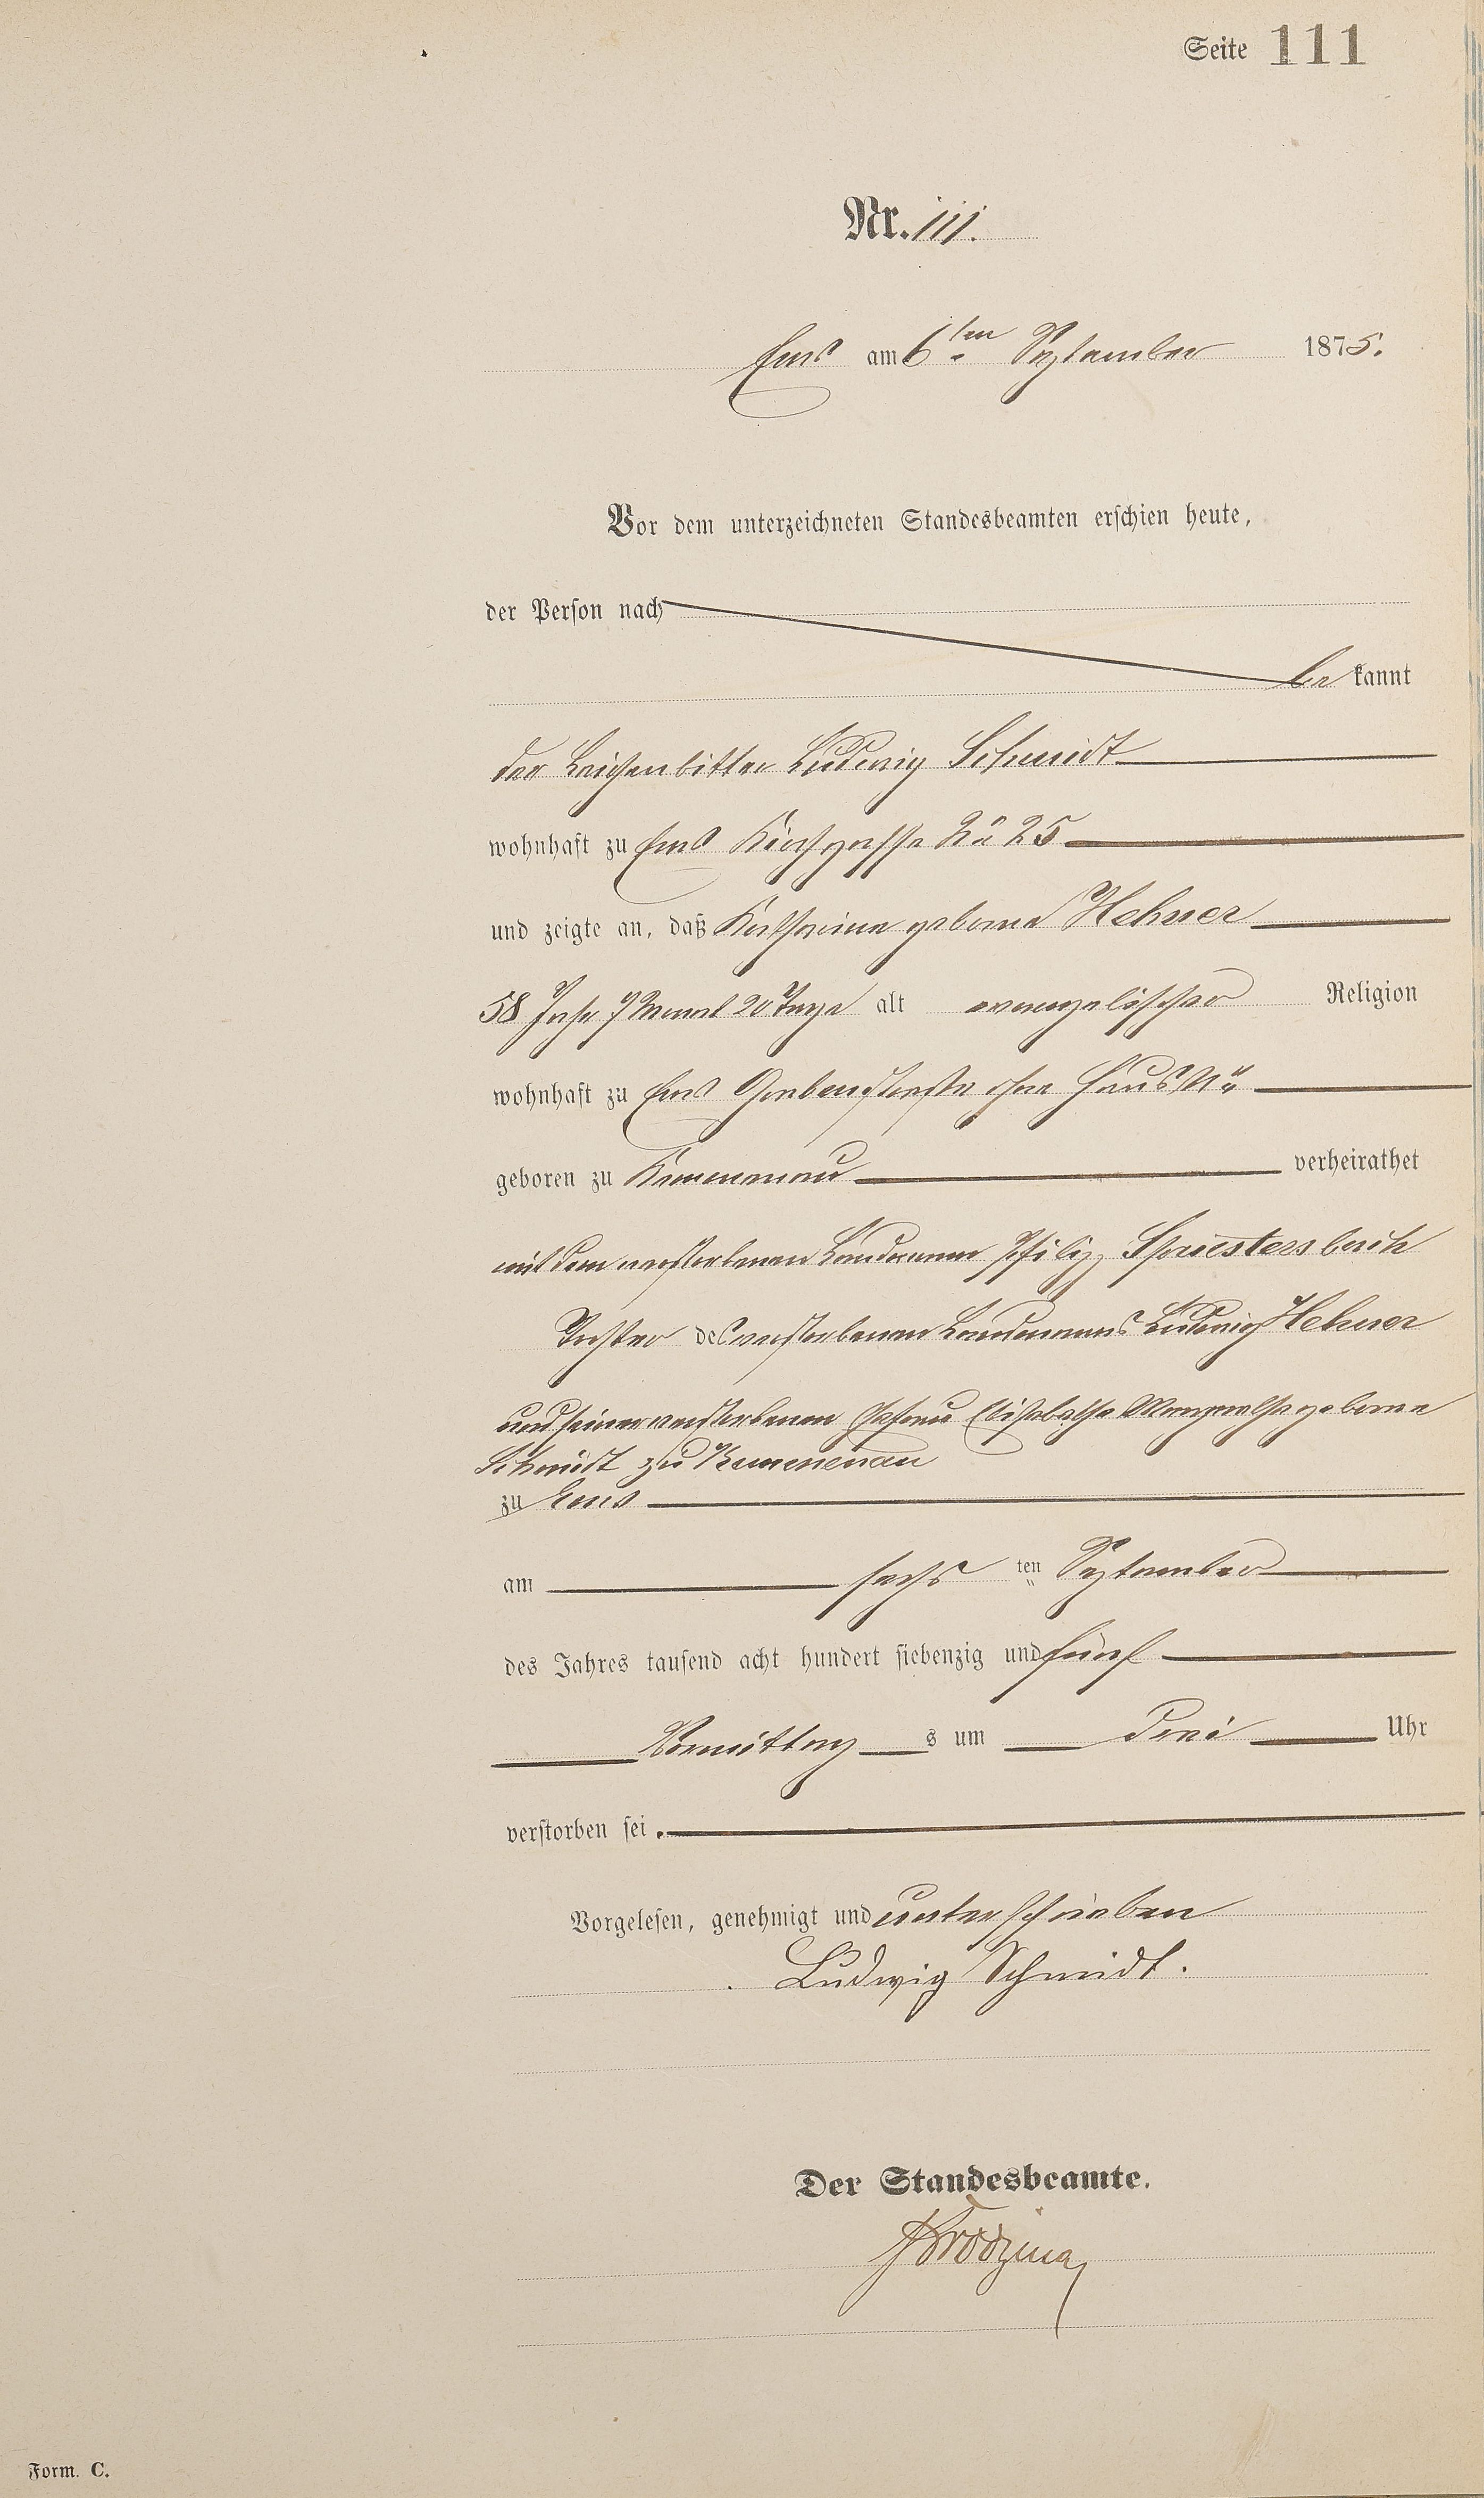 Seite 111
Nr. 111.
Ems am 6ten September 1875.
Vor dem unterzeichneten Standesbeamten erschien heute,
der Person nach
be kannt
der Leichenbitter Ludwig Schmidt
wohnhaft zu Ems Kirchgasse No 25
und zeigte an, daß Katharina geborne Hehner
58 Jahr 7 Monat 20 Tage alt evangelischer Religion
wohnhaft zu Ems Grabenstraße ohne Haus No
geboren zu Kemmenau verheirathet
mit dem verstorbenen Landmann Philipp Spriestersbach
Tochter des verstorbenen Landmanns Ludwig Hehner
und seiner verstorbenen Ehefrau Elisabetha Margaretha geborne
Schmidt zu Kemmenau
zu Ems
am sechs ten September
des Jahres tausend acht hundert siebenzig und fünf
Vormittag s um drei Uhr
verstorben sei.
Vorgelesen, genehmigt und unterschrieben
Ludwig Schmidt.
Der Standesbeamte.
Form. C.